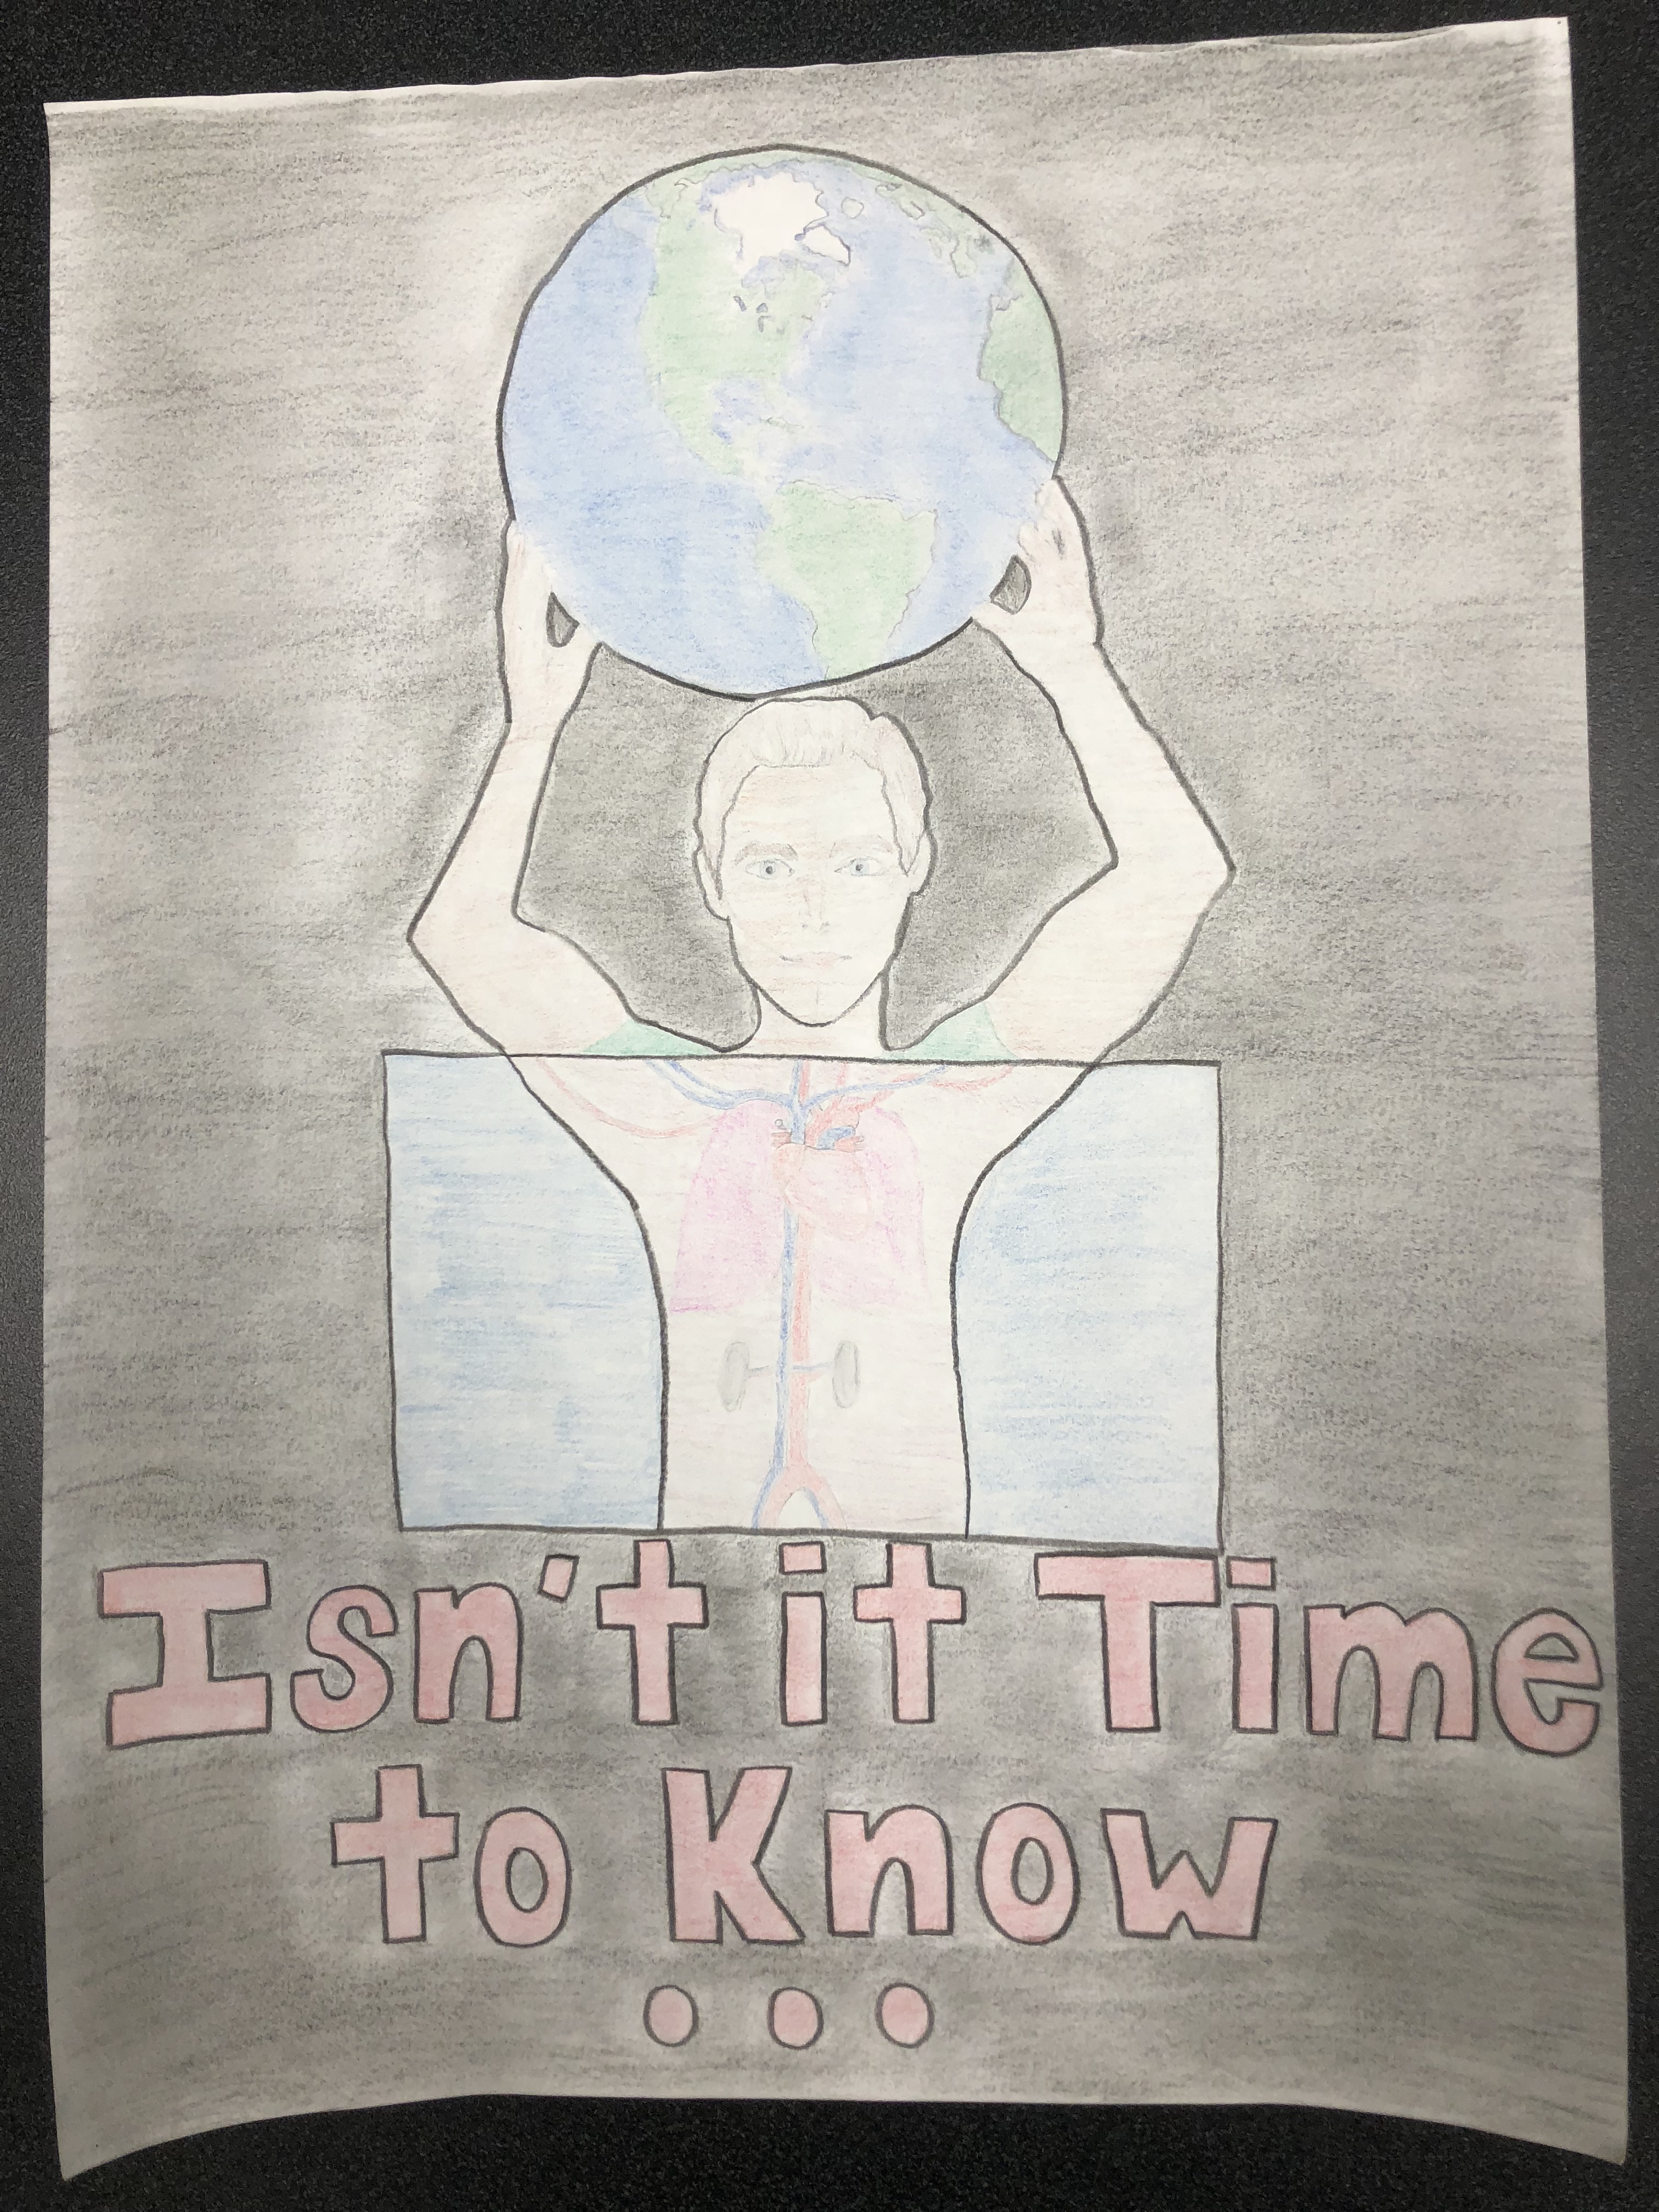 Isn't it Time
to Know
...